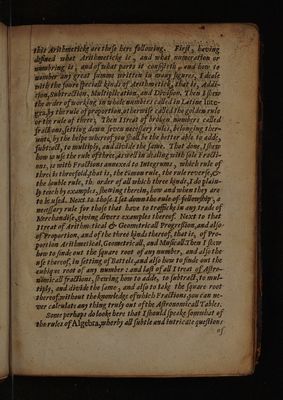 this Arithmeticke are those here following. First, having
defined what Arithmeticke is, and what numeration or
numbring is, and of what parts it consisteth, and how to
number any great summe written in many figures, I deale
with the foure speciall kinds of Arithmetick, that is, Addi-
tion, Substraction, Multiplication, and Division. Then I shew
the order of working in whole numbers called in Latine Inte-
gra, by the rule of proportion, otherwise called the golden rule
or the rule of three; Then I treat of broken numbers called
fractions, setting down seven necessary rules, belonging ther-
unto, by the helpe whereof you shall be the better able to adde,
subtract, to multiply, and divide the same. That done, I shew
how to use the rule of three, as well in dealing with sole Fracti-
ons, as with Fractions annexed to Integrums, which rule of
three is threefold, that is, the common rule, the rule reverse, &
the double rule, the order of all which three kinds, I do plain-
ly teach by examples, shewing therein, how and when they are
to be used. Next to those I set down the rule of fellowship, a
necessary rule for those that have to traffick in any trade of
Merchandise, giving divers examples thereof. Next to that
I treat of Arithmetical & Geometricall Progression, and also
of Proportion, and of the three kinds thereof, that is, of Pro-
portion Arithmeticall, Geometricall, and Musicall. Then I shew
how to finde out the square root of any number, and also the
use thereof, in setting of Battels, and also how to finde out the
cubique root of any number: and last of all I treat of Astro-
nomicall fractions, shewing how to adde, to subtract, to mul-
tiply, and divide the same, and also to take the square root
thereof, without the knowledge of which Fractions, you can ne-
ver calculate any thing truly out of the Astronomicall Tables.
Some perhaps do looke here that I should speake somwhat of
the rules of Algebra, wherby all subtle and intricate questions
of